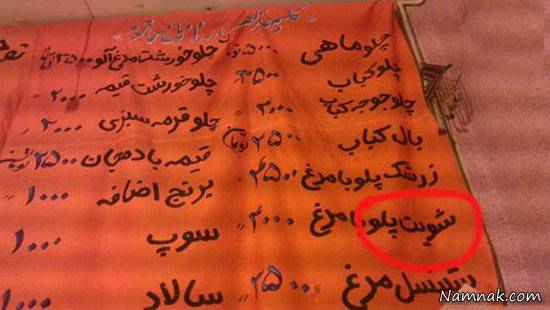 چلو ماهی ۵۰۰
چلو کباب ۳۵۰۰
چلو جوجه کباب ۳۰۰۰
بال کباب ۲۵۰۰ تومان
زرشک پلو با مرغ ۲۵۰۰
شویت پلو با مرغ ۲۰۰۰
شنسل مرغ ۲۵۰۰
چلو خورشت مرغ آلو ۲۵۰۰
چلو خورشت قیمه ۲۰۰۰
چلو قرمه سبزی ۲۰۰۰
قیمه بادمجان ۲۵۰۰
برنج اضافه ۱۰۰۰
سوپ ۱۰۰۰
سالاد ۱۰۰۰
Namnak.com